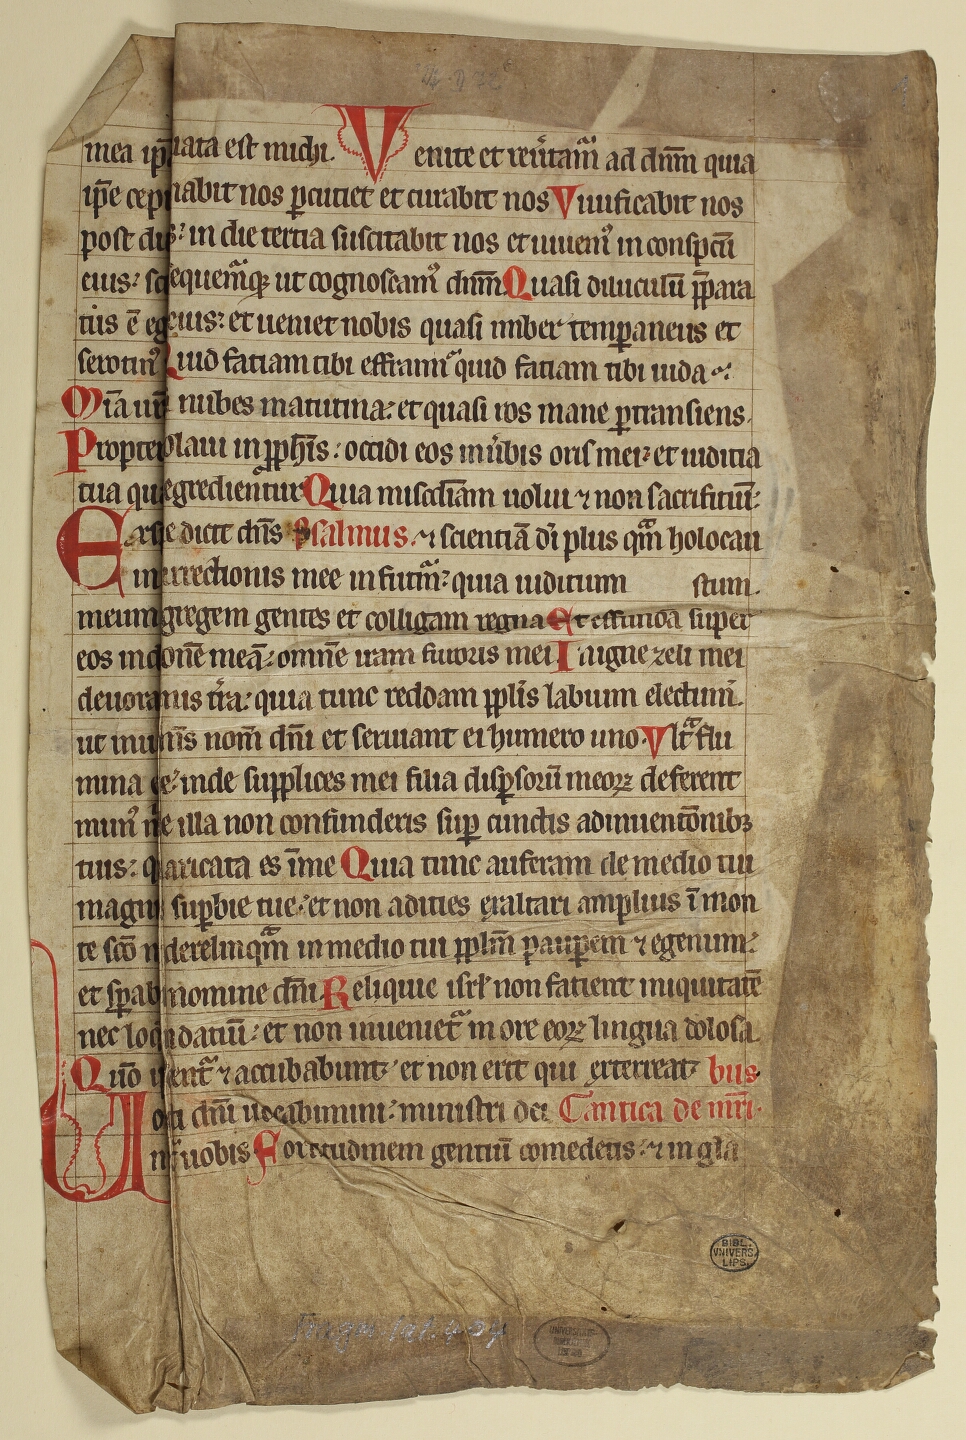 mea ip parata est michi. Venite et reũtam̃ ad dñm quia
ip̃e cep sanabit nos ꝑcutiet et curabit nos Viuificabit nos
post du s: in die tertia suscitabit nos et uiuem⁹ in conspc̃u
eius: sc sequem̃q; ut cognoscam⁹ dñm Quasi diluculũ p̃para
tus ẽ eg eius: et ueniet nobis quasi imber temꝑaneus et
serotin⁹ Quid fatiam tibi effraim quid fatiam tibi iuda
Mĩa ur̃ nubes matutina: et quasi ros mane ꝑtransiens.
Propter dolaui in ꝓph̃is: occidi eos in ũbis oris mei: et iuditia
tua qu egredient̃ur Quia mĩscd̃iam uolui ⁊ non sacrifitiũ:
Ex se dicit dñs Psalmus. ⁊ scientiã dĩ plus qm̃ holocau
in surrectionis mee in futur̃: quia iuditium stum.
meum gregem gentes et colligam regna Et effundã super
eos ind onẽ meã: omnẽ iram furoris mei In igne zeli mei
deuora nis tr̃a: quia tunc reddam pp̃lis labium electum.
ut inu nĩs nom̃ dñi et seruiant ei humero uno. Vlt̃ flu
mina e: inde supplices mei filia disꝑsorũ meoꝝ deferent
mun⁹ m e illa non confunderis suꝑ cunctis adinuentõnibꝫ
tuis: q aricata es ĩ me Quia tunc auferam de medio tui
magni suꝑbie tue: et non adities exaltari amplius ĩ mon
te sc̃o n derelinqm̃ in medio tui pp̃lm pauꝑem ⁊ egenum:
et sꝑab nomine dñi Reliquie isrl̃ non fatient iniquitatẽ
nec loq ndatiũ: et non inueniet̃ in ore eoꝝ lingua dolosa
Qũo i ent̃ ⁊ accubabunt: et non erit qui exterreat bus
dñi uocabimini: ministri dei Cantica de mr̃i.
uobis Fortitudinem gentiũ comedetis: ⁊ in gl̃a
BIBL.
VNIVERS.
LIPS.